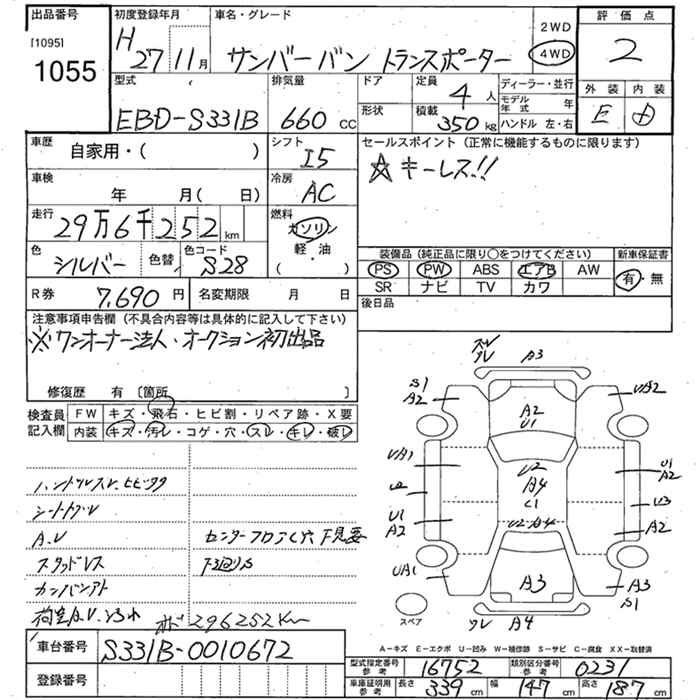 出品番号 初度登録年月 車名・グレード 評価点
[1095] 1055
H 27 11月 サンバーバン トランスポーター 2WD 4WD 2
型式 排気量 ドア 定員 4人 ディーラー・並行 外装 内装
EBD-S331B 660 CC 形状 積載 350kg モデル年式 年 ハンドル 左・右 E D
車歴 自家用・( ) シフト I5 セールスポイント(正常に機能するものに限ります)
☆キーレス!!
車検 年 月(日) 冷房 AC
走行 29万6千252km 燃料 ガソリン・軽油・( )
色 シルバー 色替 色コード S28
装備品(純正品に限り○をつけてください) 新車保証書
PS PW ABS エアB AW 有・無
SR ナビ TV カワ
R券 7,690円 名変期限 月 日 後日品
注意事項申告欄(不具合内容等は具体的に記入して下さい)
※ワンオーナー法人、オークション初出品
修復歴 有〔箇所 〕
検査員記入欄 FW キズ・飛石・ヒビ割・リペア跡・X要
内装 キズ・汚レ・コゲ・穴・スレ・キレ・破レ
A3
S1 A2 UA2
A2 U1
UA1 U2 A4 C1 U1 A2
U2 U3
U1 A2 U2・A4 A2
UA1 A3 A3 S1
スペア ワレ A4
ハンドルスレ、ヒビワレ
A.U センターフロア穴 下見要
スタッドレス 下廻りS
カンバンアト
オド296252Km
車台番号 S331B-0010672
登録番号
A-キズ E-エクボ U-凹み W-補修跡 S-サビ C-腐食 XX-取替済
型式指定番号 参考 16752 類別区分番号 参考 0231
車庫証明用 参考 長さ 339cm 幅 147cm 高さ 187cm